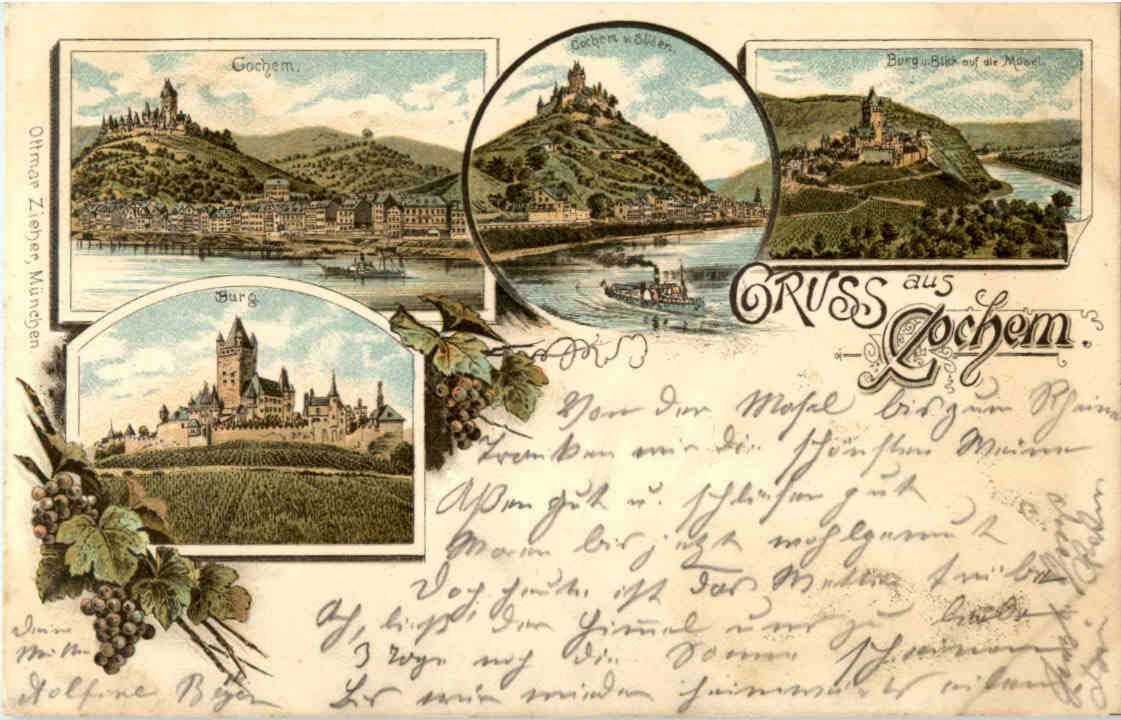 Cochem.
Cochem v. Süden.
Burg u. Blick auf die Mosel.
Ottmar Zieher, München
Burg.
GRUSS aus
Cochem.
Von der Mosel bis zum Rhein
Tranken wir die schönsten Weine
Aßen gut u. schliefen gut
Waren bis jetzt wohlgemut
Doch heute ist das Wetter trübe
Ach, ließ' der Himmel uns zu liebe
3 Tage noch die Sonne scheinen
Bis wir wieder heimwärts eilen